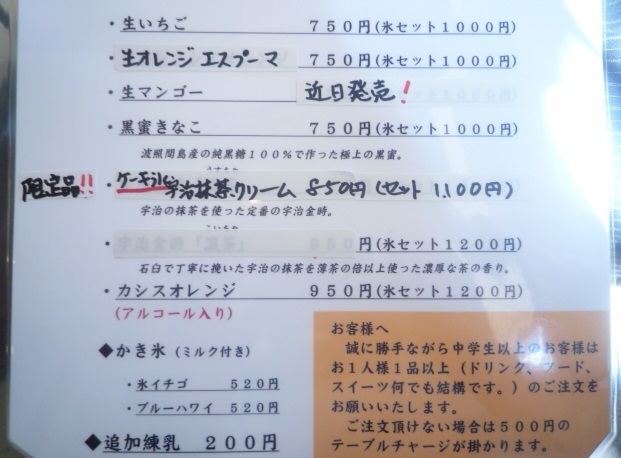 ・生いちご　７５０円(氷セット１０００円)
・生オレンジ エスプーマ　７５０円(氷セット１０００円)
・生マンゴー　近日発売！
・黒蜜きなこ　７５０円(氷セット１０００円)
波照間島産の純黒糖１００％で作った極上の黒蜜。
限定品!!・宇治抹茶クリーム 850円(セット 1,100円)
宇治の抹茶を使った定番の宇治金時。
・宇治金時　９５０円(氷セット１２００円)
石臼で丁寧に挽いた宇治の抹茶を薄茶の倍以上使った濃厚な茶の香り。
・カシスオレンジ　９５０円(氷セット１２００円)
(アルコール入り)
◆かき氷（ミルク付き）
・氷イチゴ　５２０円
・ブルーハワイ　５２０円
◆追加練乳　２００円
お客様へ
誠に勝手ながら中学生以上のお客様は
お１人様１品以上（ドリンク、フード、
スイーツ何でも結構です。）のご注文を
お願いいたします。
ご注文頂けない場合は５００円の
テーブルチャージが掛かります。